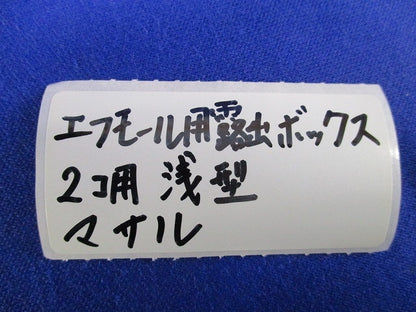 エフモール用露出ボックス
2コ用 浅型
マサル